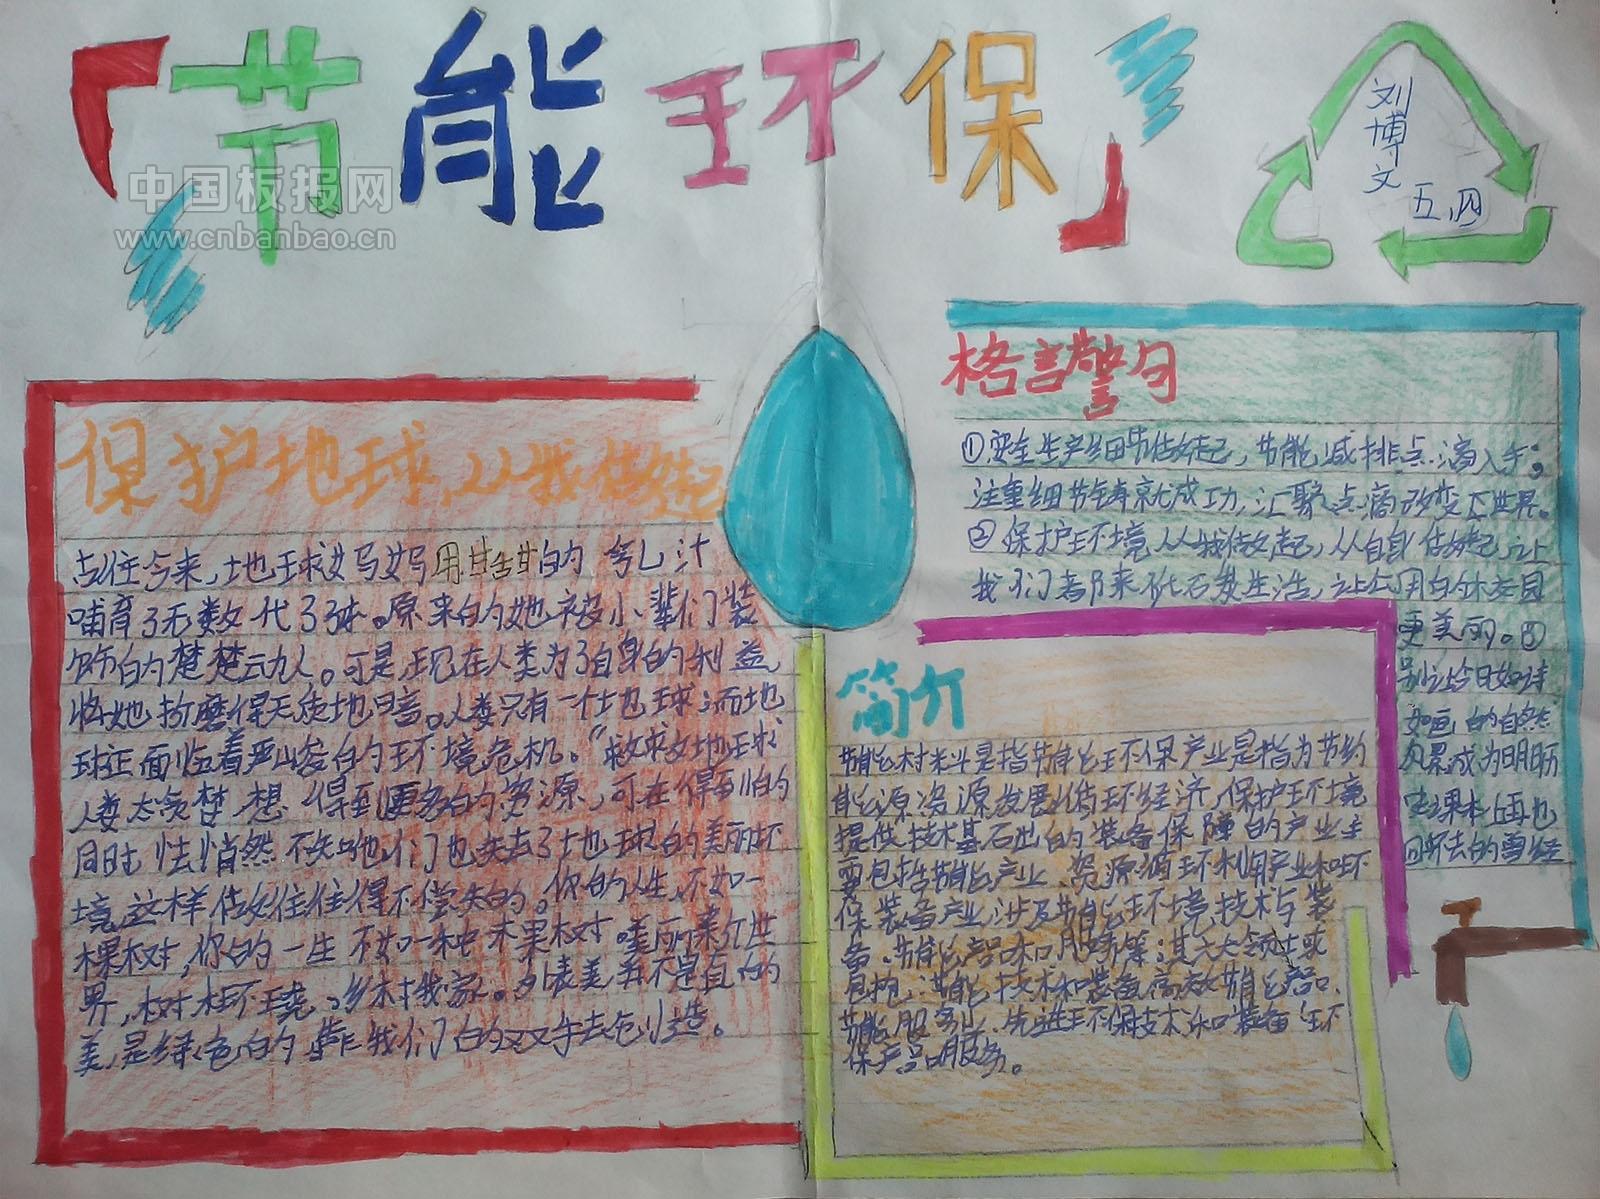 「节能环保」
刘博文
五,四
中国板报网
www.cnbanbao.cn
保护地球,从我做起
古往今来,地球妈妈用甘甜的乳汁
哺育了无数代子孙。原来的她被小辈们装
饰的楚楚动人。可是,现在人类为了自身的利益,
将她折磨得天使地暗。人类只有一个地球;而地
球正面临着严峻的环境危机。“救救地球
人类太贪婪,想得到更多的资源,可在得到的
同时,悄然不失地他们也失去了地球的美丽环
境,这样做往往得不偿失的。你的人生,不如一
棵树,你的一生不如一种果树。美丽来介世
界,树木环绕。乡村我家。外表美再不是真的
美,是绿色的靠我们的双手去创造。
格言警句
①安全生产细节做起,节能减排点滴入手;
注重细节铸就成功,汇聚点滴改变世界。
②保护环境从我做起,从自身做起,让
我们都来低石炭生活,让公用白的休校园
更美丽。③
别让今日如诗
如画的自然
风景成为明日历
史课本上再也
回不去的曾经
简介
节能材料是指节能环保产业是指为节约
能源资源发展循环经济,保护环境
提供技术基础的装备保障的产业主
要包括节能产业、资源循环利用产业和环
保装备产业,涉及节能环境技术与装
备、节能产品和服务等;其六大领域
包括:节能技术和装备高效节能产品、
节能服务业、先进环保技术和装备、环
保产品服务。